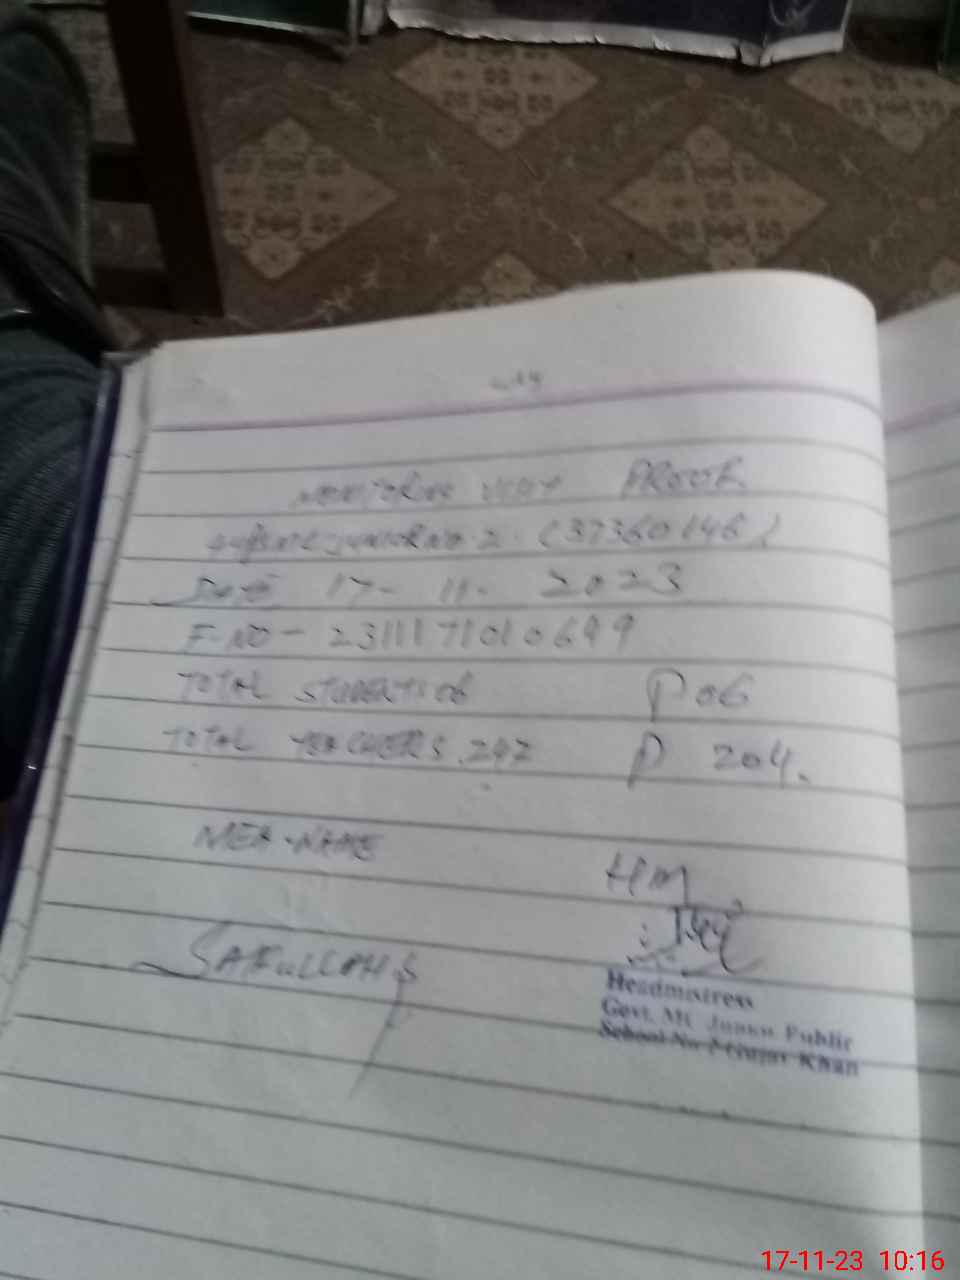 MONITORING VISIT PROOF
JUNIOR NO. 2. (37360146)
DATE 17- 11- 2023
F-NO - 2311171010699
TOTAL STUDENTS 06 P 06
TOTAL TEACHERS. 242 P 204.
MEA-NAME
HM
SAFULLAH
Headmistress
Govt. MC Junior Public
School No 2 Gujar Khan
17-11-23 10:16